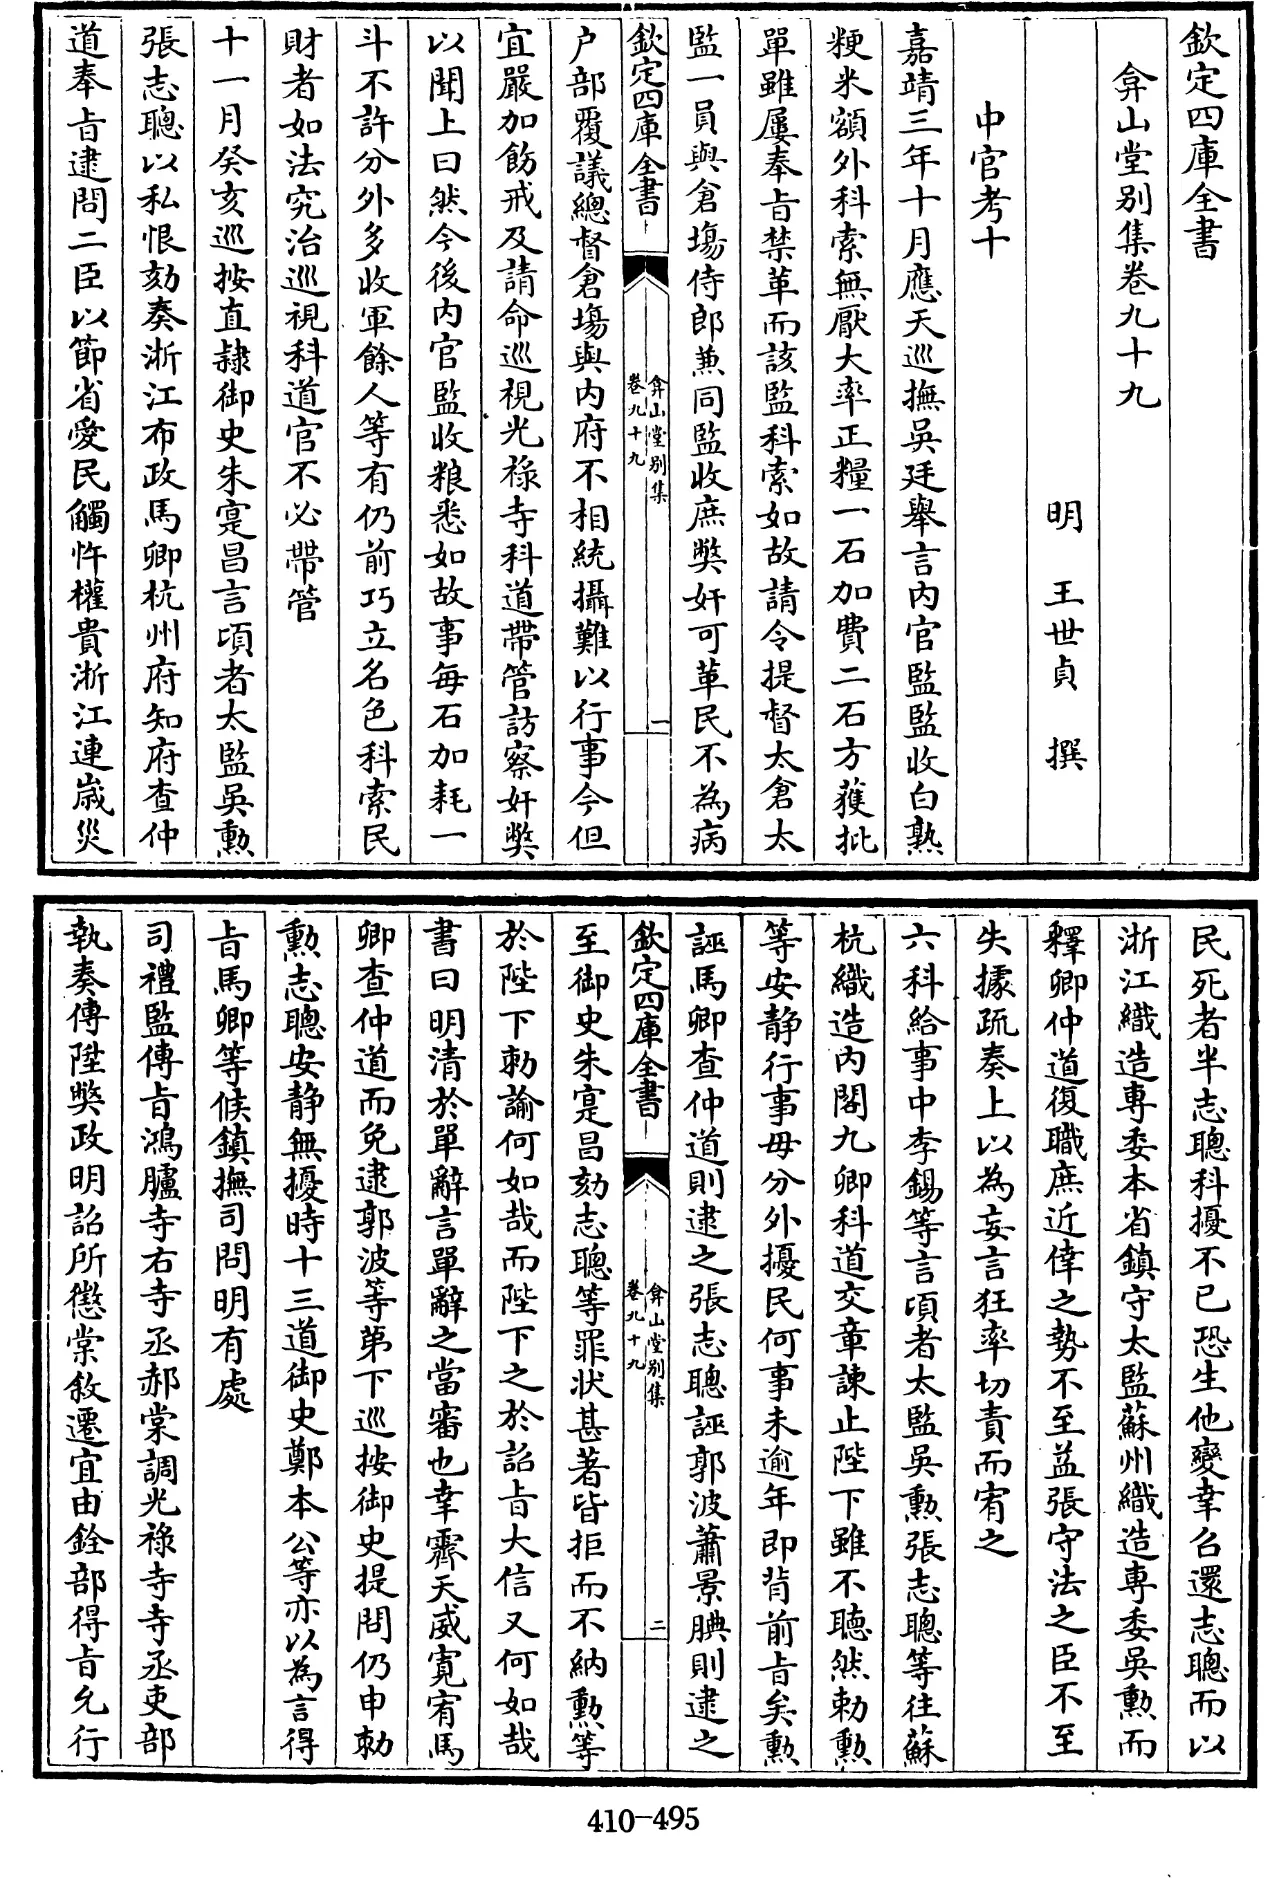 欽定四庫全書
弇山堂别集卷九十九
明 王世貞 撰
中官考十
嘉靖三年十月應天巡撫吳廷舉言内官監監收白熟
粳米額外科索無厭大率正糧一石加費二石方獲批
單雖屢奉旨禁革而該監科索如故請令提督太倉太
監一員與倉塲侍郎兼同監收庶弊奸可革民不為病
欽定四庫全書
弇山堂别集
卷九十九
一
户部覆議總督倉塲與内府不相統攝難以行事今但
宜嚴加飭戒及請命巡視光祿寺科道帶管訪察奸弊
以聞上曰然今後内官監收粮悉如故事每石加耗一
斗不許分外多收軍餘人等有仍前巧立名色科索民
財者如法究治巡視科道官不必帶管
十一月癸亥巡按直隸御史朱寔昌言頃者太監吳勲
張志聰以私恨劾奏浙江布政馬卿杭州府知府查仲
道奉旨逮問二臣以節省愛民觸忤權貴浙江連歲災
民死者半志聰科擾不已恐生他變幸召還志聰而以
浙江織造專委本省鎮守太監蘇州織造專委吳勲而
釋卿仲道復職庶近倖之勢不至益張守法之臣不至
失據疏奏上以為妄言狂率切責而宥之
六科給事中李錫等言頃者太監吳勲張志聰等往蘇
杭織造内閣九卿科道交章諫止陛下雖不聽然勅勲
等安静行事毋分外擾民何事未逾年即背前旨矣勲
誣馬卿查仲道則逮之張志聰誣郭波蕭景腆則逮之
欽定四庫全書
弇山堂别集
卷九十九
二
至御史朱寔昌劾志聰等罪狀甚著皆拒而不納勲等
於陛下勅諭何如哉而陛下之於詔旨大信又何如哉
書曰明清於單辭言單辭之當審也幸霽天威寛宥馬
卿查仲道而免逮郭波等第下巡按御史提問仍申勅
勲志聰安静無擾時十三道御史鄭本公等亦以為言得
旨馬卿等候鎮撫司問明有處
司禮監傳旨鴻臚寺右寺丞郝棠調光祿寺寺丞吏部
執奏傳陞弊政明詔所懲棠敘遷宜由銓部得旨允行
410-495